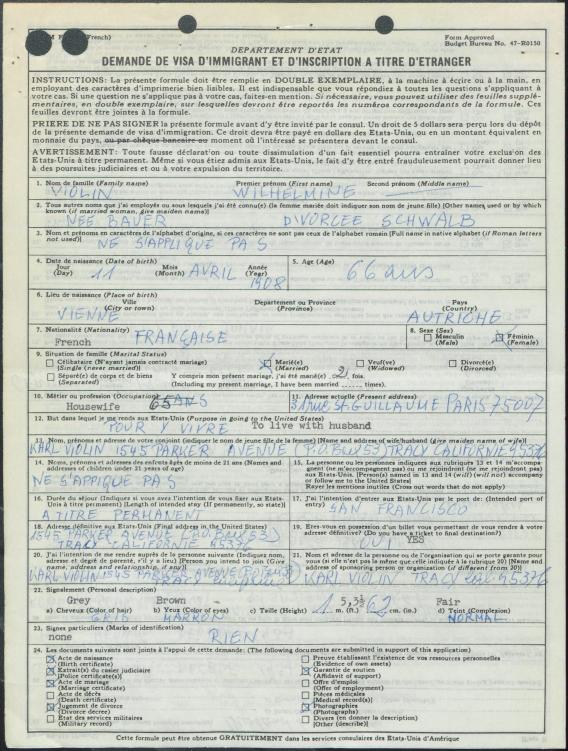 (French)
Form Approved
Budget Bureau No. 47-R0150
DEPARTEMENT D'ETAT
DEMANDE DE VISA D'IMMIGRANT ET D'INSCRIPTION A TITRE D'ETRANGER
INSTRUCTIONS: La présente formule doit être remplie en DOUBLE EXEMPLAIRE, à la machine à écrire ou à la main, en
employant des caractères d'imprimerie bien lisibles. Il est indispensable que vous répondiez à toutes les questions s'appliquant à
votre cas. Si une question ne s'applique pas à votre cas, faites-en mention. Si nécessaire, vous pouvez utiliser des feuilles supplé-
mentaires, en double exemplaire, sur lesquelles devront être reportés les numéros correspondants de la formule. Ces
feuilles devront être jointes à la formule.
PRIERE DE NE PAS SIGNER la présente formule avant d'y être invité par le consul. Un droit de 5 dollars sera perçu lors du dépôt
de la présente demande de visa d'immigration. Ce droit devra être payé en dollars des Etats-Unis, ou en un montant équivalent en
monnaie du pays, ou par chèque bancaire au moment où l'intéressé se présentera devant le consul.
AVERTISSEMENT: Toute fausse déclaration ou toute dissimulation d'un fait essentiel pourra entraîner votre exclusion des
Etats-Unis à titre permanent. Même si vous étiez admis aux Etats-Unis, le fait d'y être entré frauduleusement pourrait donner lieu
à des poursuites judiciaires à votre encontre et/ou à votre expulsion du territoire.
1. Nom de famille (Family name) Premier prénom (First name) Second prénom (Middle name)
VIOLIN WILHELMINE
2. Tous autres noms que j'ai employés ou sous lesquels j'ai été connu(e) (la femme mariée doit indiquer son nom de jeune fille) [Other names used or by which
known (if married woman, give maiden name)]
NEE BAUER DIVORCEE SCHWALB
3. Nom et prénoms en caractères de l'alphabet d'origine, si ces caractères ne sont pas ceux de l'alphabet romain [Full name in native alphabet (if Roman letters
not used)]
NE S'APPLIQUE PAS
4. Date de naissance (Date of birth) 5. Age (Age)
Jour (Day) 11 Mois (Month) AVRIL Année (Year) 1908 66 ans
6. Lieu de naissance (Place of birth)
Ville (City or town) Département ou Province (Province) Pays (Country)
VIENNE AUTRICHE
7. Nationalité (Nationality) FRANÇAISE 8. Sexe (Sex)
French Masculin (Male) Féminin (Female)
9. Situation de famille (Marital Status)
Célibataire (N'ayant jamais contracté mariage) Marié(e) Veuf(ve) Divorcé(e)
(Single (never married) (Married) (Widowed) (Divorced)
Séparé(e) de corps et de biens Y compris mon présent mariage, j'ai été marié(e) 2 fois.
(Separated) (Including my present marriage, I have been married ...... times).
10. Métier ou profession (Occupation) 65 ANS 11. Adresse actuelle (Present address)
Housewife 31 rue St GUILLAUME PARIS 75007
12. But dans lequel je me rends aux Etats-Unis (Purpose in going to the United States)
POUR Y VIVRE To live with husband
13. Nom, prénoms et adresse de votre conjoint (indiquer le nom de jeune fille de la femme) [Name and address of wife/husband (give maiden name of wife)]
KARL VIOLIN 1545 PARKER AVENUE (P.O. Box 53) TRACY CALIFORNIE 95376
14. Noms, prénoms et adresses des enfants âgés de moins de 21 ans (Names and
addresses of children under 21 years of age)
NE S'APPLIQUE PAS
15. La personne ou les personnes indiquées aux rubriques 13 et 14 m'accompa-
gnent (ne m'accompagnent pas) ou me rejoindront (ne me rejoindront pas)
aux Etats-Unis. [Person(s) named in 13 and 14 (will) (will not) accompany
or follow me to the United States]
Rayer les mentions inutiles (Cross out words that do not apply)
16. Durée du séjour (Indiquez si vous avez l'intention de vous fixer aux Etats-
Unis à titre permanent) (Length of intended stay (If permanently, so state)
A TITRE PERMANENT
17. J'ai l'intention d'entrer aux Etats-Unis par le port de: (Intended port of
entry)
SAN FRANCISCO
18. Adresse définitive aux Etats-Unis (Final address in the United States)
1545 PARKER AVENUE (P.O. Box 53)
TRACY CALIFORNIE 95376
19. Etes-vous en possession d'un billet vous permettant de vous rendre à votre
adresse définitive? (Do you have a ticket to final destination?)
OUI YES
20. J'ai l'intention de me rendre auprès de la personne suivante (Indiquez nom,
adresse et degré de parenté, s'il y a lieu) [Person you intend to join (Give
name, address and relationship, if any)]
KARL VIOLIN 1545 PARKER AVENUE
21. Nom et adresse de la personne ou de l'organisation qui se porte garante pour
vous (si elle n'est pas la même que celle indiquée à la rubrique 20) [Name and
address of sponsoring person or organization (if different from 20)]
KARL VIOLIN TRACY Cal 95376
22. Signalement (Personal description)
Grey Brown 5,3½ Fair
a) Cheveux (Color of hair) b) Yeux (Color of eyes) c) Taille (Height) 1 m. (ft.) 62 cm. (in.) d) Teint (Complexion)
GRIS MARRON NORMAL
23. Signes particuliers (Marks of identification)
none RIEN
24. Les documents suivants sont joints à l'appui de cette demande: (The following documents are submitted in support of this application)
Acte de naissance
(Birth certificate)
Extrait(s) du casier judiciaire
[Police certificate(s)]
Acte de mariage
(Marriage certificate)
Acte de décès
(Death certificate)
Jugement de divorce
(Divorce decree)
Etat des services militaires
(Military record)
Preuve établissant l'existence de vos ressources personnelles
(Evidence of own assets)
Garantie de soutien
(Affidavit of support)
Offre d'emploi
(Offer of employment)
Pièces médicales
[Medical record(s)]
Photographies
(Photographs)
Divers (en donner la description)
[Other (describe)]
Cette formule peut être obtenue GRATUITEMENT dans les services consulaires des Etats-Unis d'Amérique